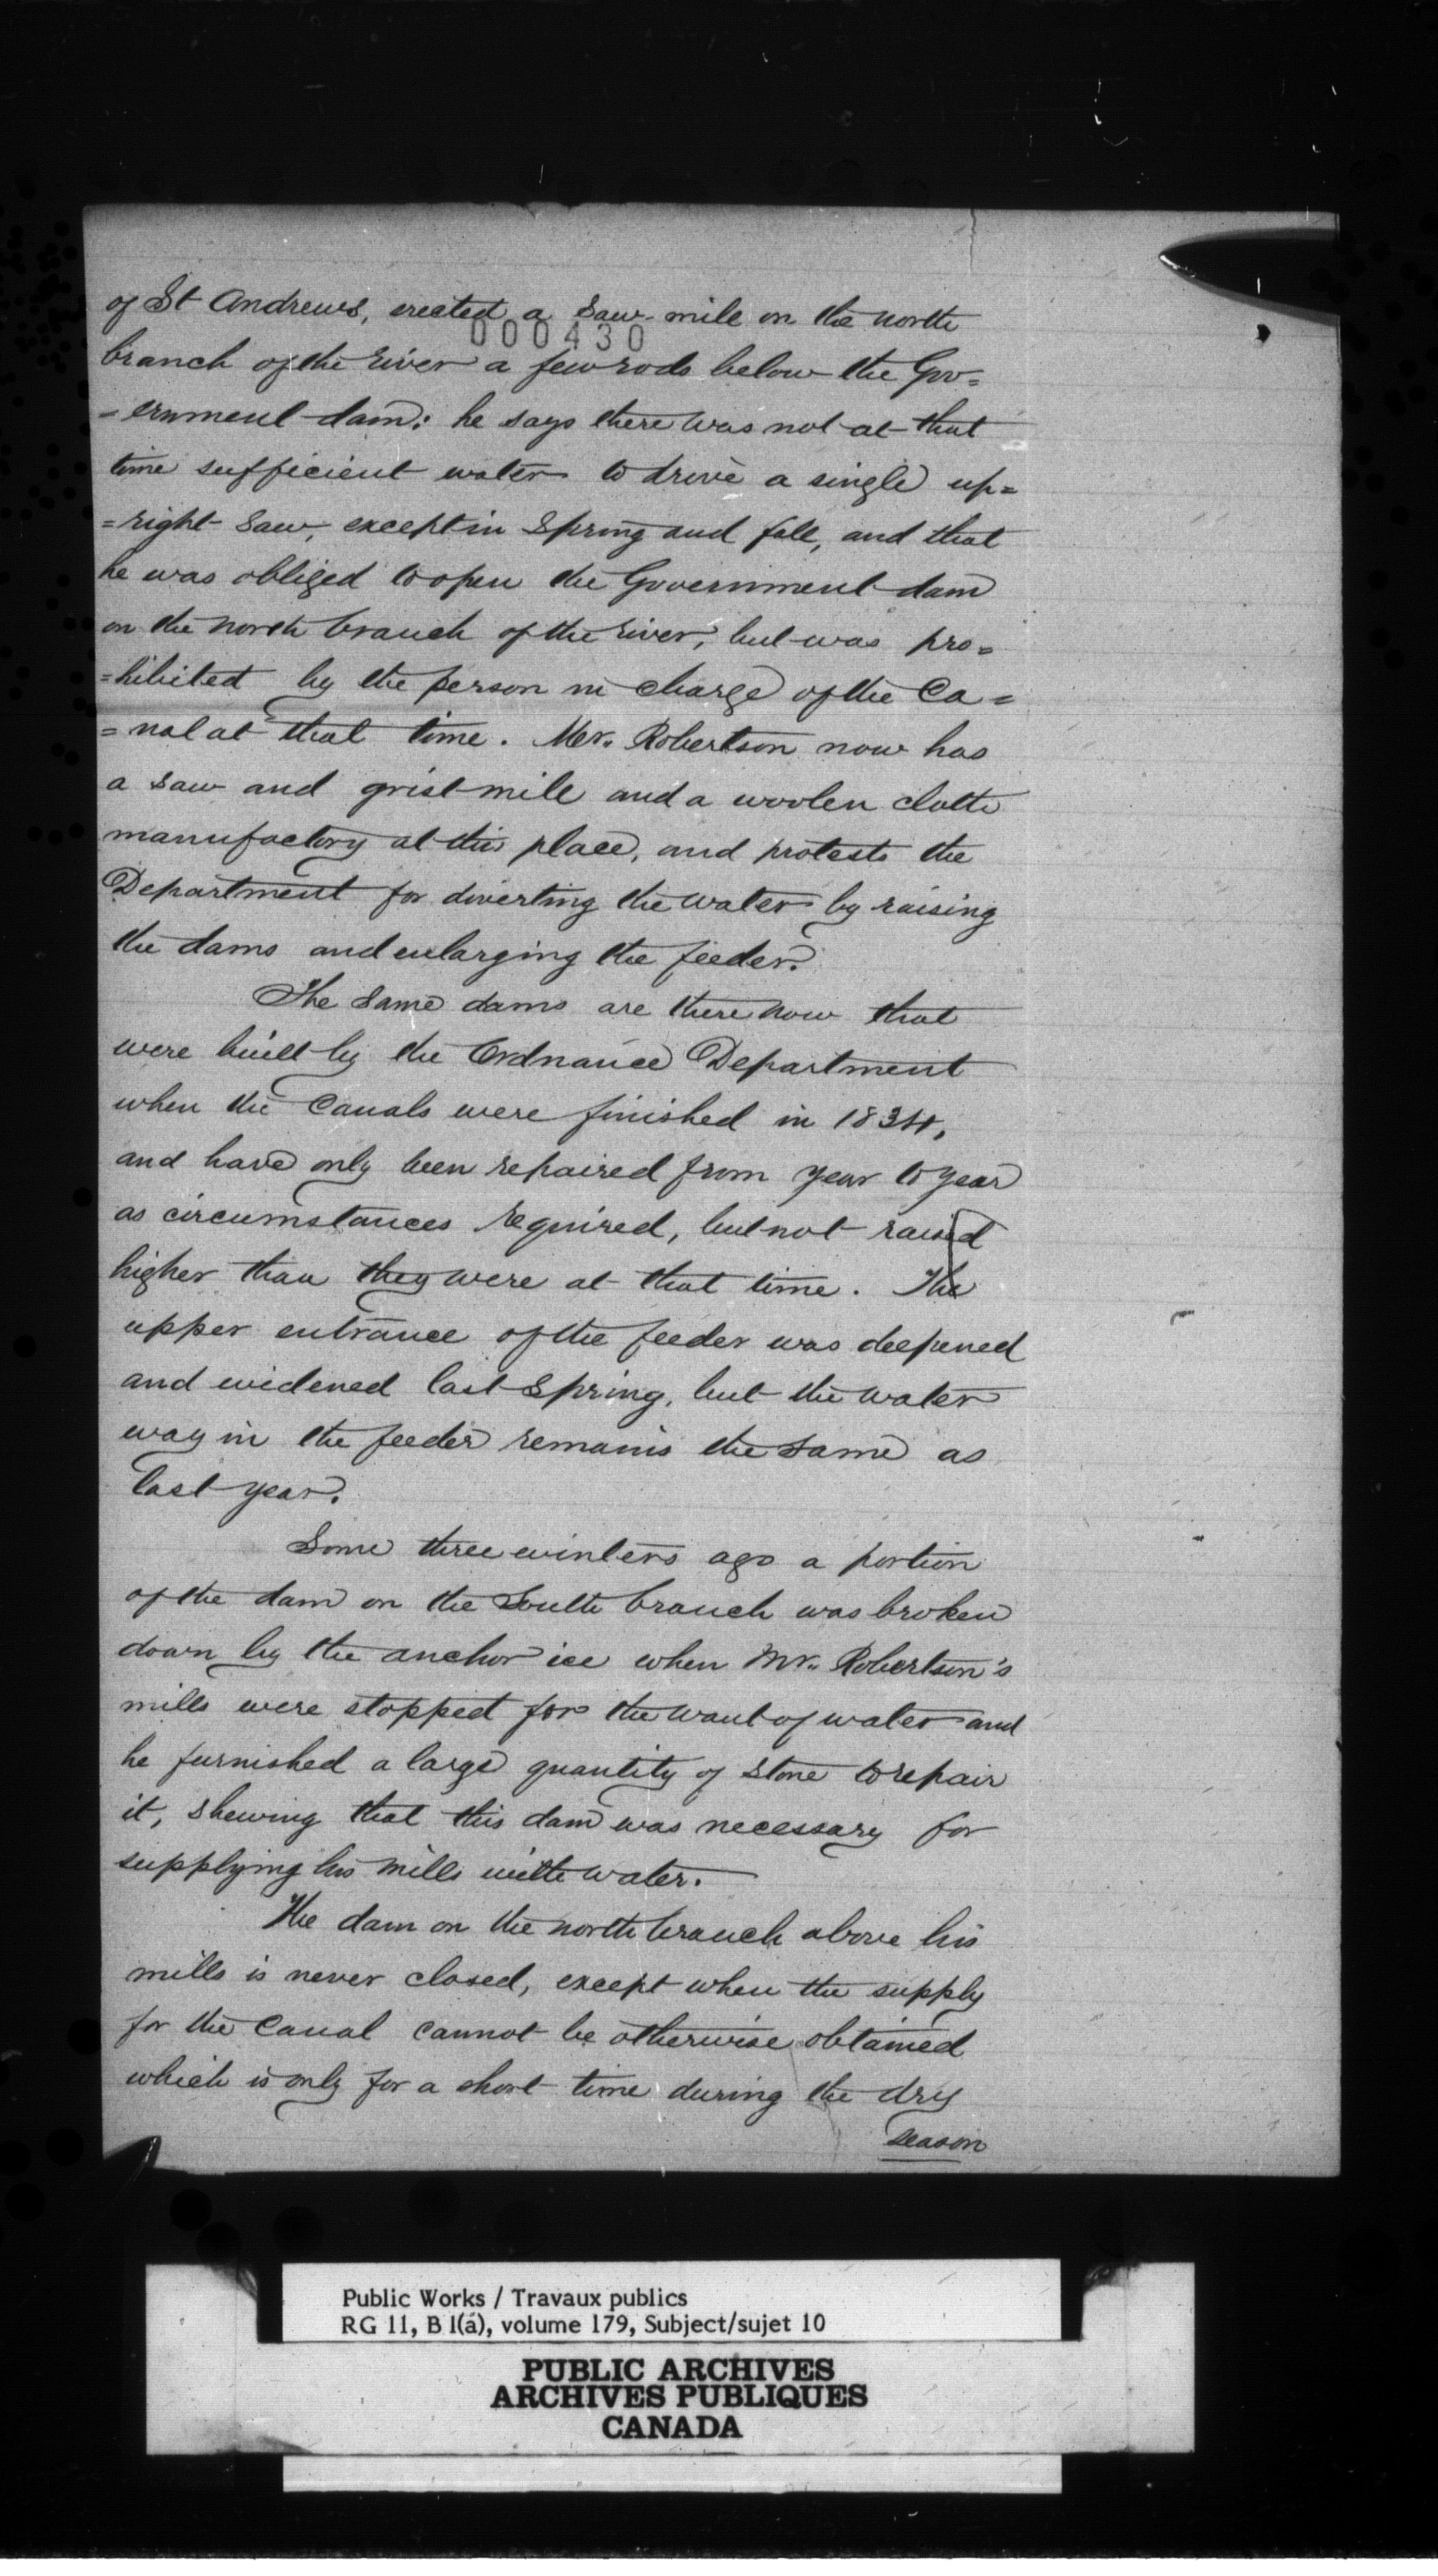 of St Andrews, erected a saw-mill on the north
000430
branch of the river a few rods below the Gov=
=ernment dam; he says there was not at that
time sufficient water to drive a single up=
=right saw, except in Spring and fall, and that
he was obliged to open the Government dam
on the north branch of the river, but was pro=
=hibited by the person in charge of the Ca=
=nal at that time. Mr. Robertson now has
a saw and grist mill and a woolen cloth
manufactory at this place, and protests the
Department for diverting the water by raising
the dams and enlarging the feeder.
The same dams are there now that
were built by the Ordnance Department
when the Canals were finished in 1834,
and have only been repaired from year to year
as circumstances required, but not raised
higher than they were at that time. The
upper entrance of the feeder was deepened
and widened last Spring, but the water
way in the feeder remains the same as
last year.
Some three winters ago a portion
of the dam on the South branch was broken
down by the anchor ice when Mr. Robertson's
mills were stopped for the want of water and
he furnished a large quantity of stone to repair
it, shewing that this dam was necessary for
supplying his mills with water.
The dam on the north branch above his
mills is never closed, except when the supply
for the Canal cannot be otherwise obtained
which is only for a short time during the dry
season
Public Works / Travaux publics
RG 11, B 1(a), volume 179, Subject/sujet 10
PUBLIC ARCHIVES
ARCHIVES PUBLIQUES
CANADA